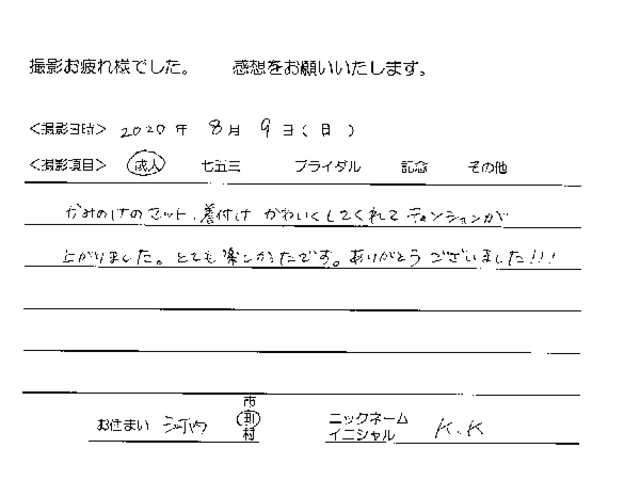 撮影お疲れ様でした。 感想をお願いいたします。
<撮影日時> 2020年 8月 9日(日)
<撮影項目> 成人 七五三 ブライダル 記念 その他
かみのけのセット、着付け かわいくしてくれて テンションが
上がりました。とても楽しかったです。ありがとうございました!!!
お住まい 河内 市 町 村 ニックネーム イニシャル K.K